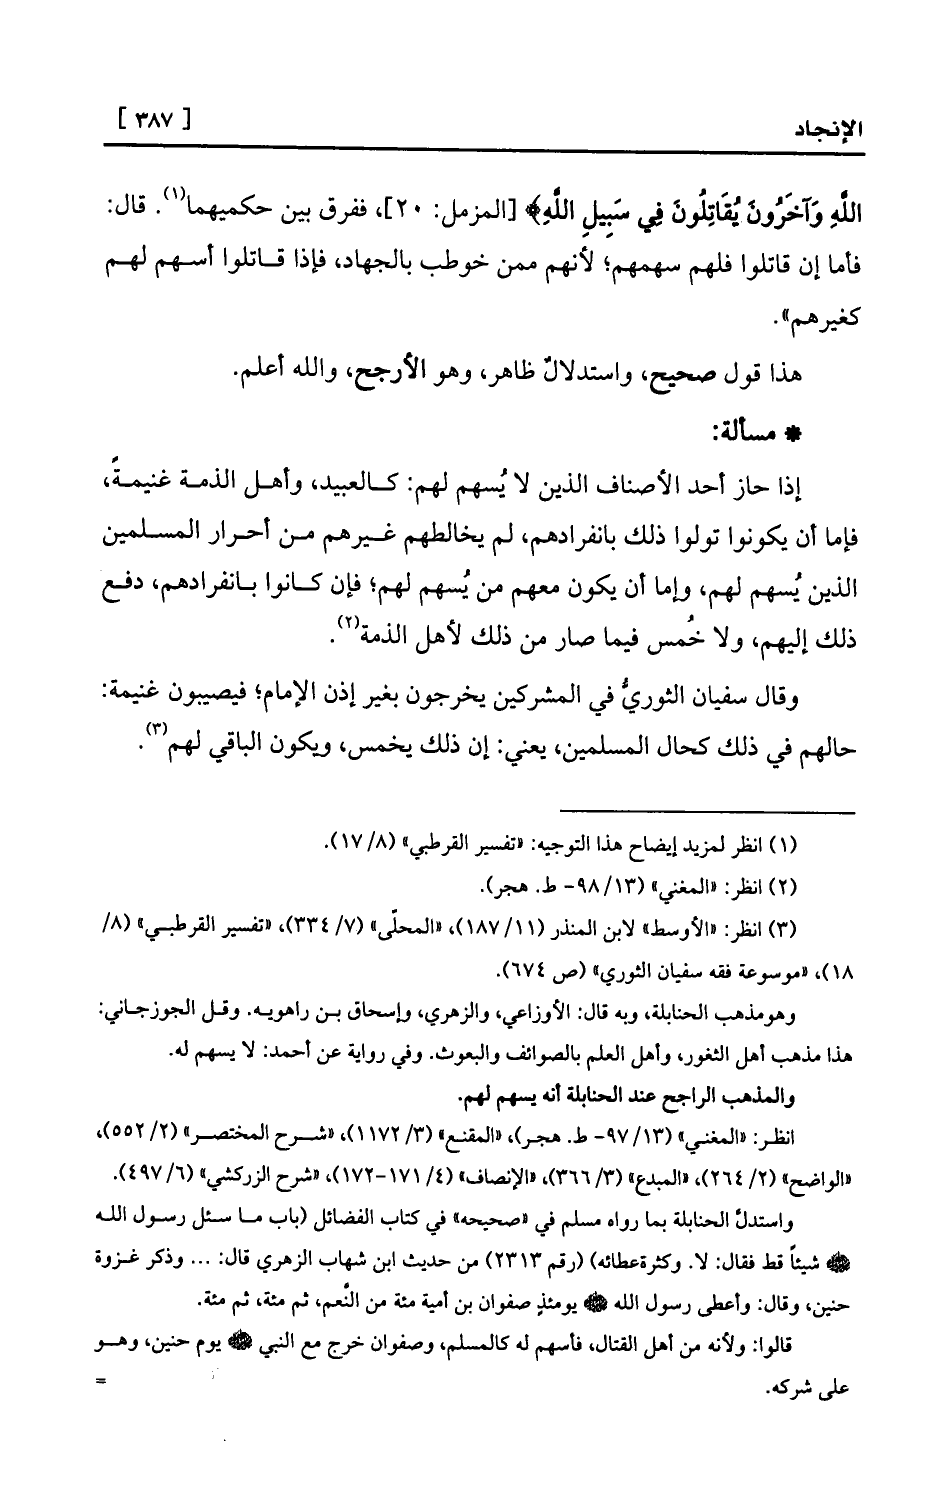 الإنجاد
[ ٣٨٧ ]
اللَّهِ وَآخَرُونَ يُقَاتِلُونَ فِي سَبِيلِ اللَّهِ﴾ [المزمل: ٢٠]، ففرق بين حكميهما(١). قال:
فأما إن قاتلوا فلهم سهمهم؛ لأنهم ممن خوطب بالجهاد، فإذا قاتلوا أسهم لهم
كغيرهم».
هذا قول صحيح، واستدلالٌ ظاهر، وهو الأرجح، والله أعلم.
* مسألة:
إذا حاز أحد الأصناف الذين لا يُسهم لهم: كالعبيد، وأهل الذمة غنيمةً،
فإما أن يكونوا تولوا ذلك بانفرادهم، لم يخالطهم غيرهم من أحرار المسلمين
الذين يُسهم لهم، وإما أن يكون معهم من يُسهم لهم؛ فإن كانوا بانفرادهم، دفع
ذلك إليهم، ولا خُمس فيما صار من ذلك لأهل الذمة(٢).
وقال سفيان الثوريُّ في المشركين يخرجون بغير إذن الإمام؛ فيصيبون غنيمة:
حالهم في ذلك كحال المسلمين، يعني: إن ذلك يخمس، ويكون الباقي لهم(٣).
(١) انظر لمزيد إيضاح هذا التوجيه: «تفسير القرطبي» (٨/ ١٧).
(٢) انظر: «المغني» (١٣/ ٩٨- ط. هجر).
(٣) انظر: «الأوسط» لابن المنذر (١١/ ١٨٧)، «المحلّى» (٧/ ٣٣٤)، «تفسير القرطبي» (٨/
١٨)، «موسوعة فقه سفيان الثوري» (ص ٦٧٤).
وهومذهب الحنابلة، وبه قال: الأوزاعي، والزهري، وإسحاق بن راهويه. وقل الجوزجاني:
هذا مذهب أهل الثغور، وأهل العلم بالصوائف والبعوث. وفي رواية عن أحمد: لا يسهم له.
والمذهب الراجح عند الحنابلة أنه يسهم لهم.
انظر: «المغني» (١٣/ ٩٧- ط. هجر)، «المقنع» (٣/ ١١٧٢)، «شرح المختصر» (٢/ ٥٥٢)،
«الواضح» (٢/ ٢٦٤)، «المبدع» (٣/ ٣٦٦)، «الإنصاف» (٤/ ١٧١-١٧٢)، «شرح الزركشي» (٦/ ٤٩٧).
واستدلَّ الحنابلة بما رواه مسلم في «صحيحه» في كتاب الفضائل (باب ما سئل رسول الله
ﷺ شيئاً قط فقال: لا. وكثرةعطائه) (رقم ٢٣١٣) من حديث ابن شهاب الزهري قال: ... وذكر غزوة
حنين، وقال: وأعطى رسول الله ﷺ يومئذٍ صفوان بن أمية مئة من النَّعم، ثم مئة، ثم مئة.
قالوا: ولأنه من أهل القتال، فأسهم له كالمسلم، وصفوان خرج مع النبي ﷺ يوم حنين، وهو
على شركه.
=